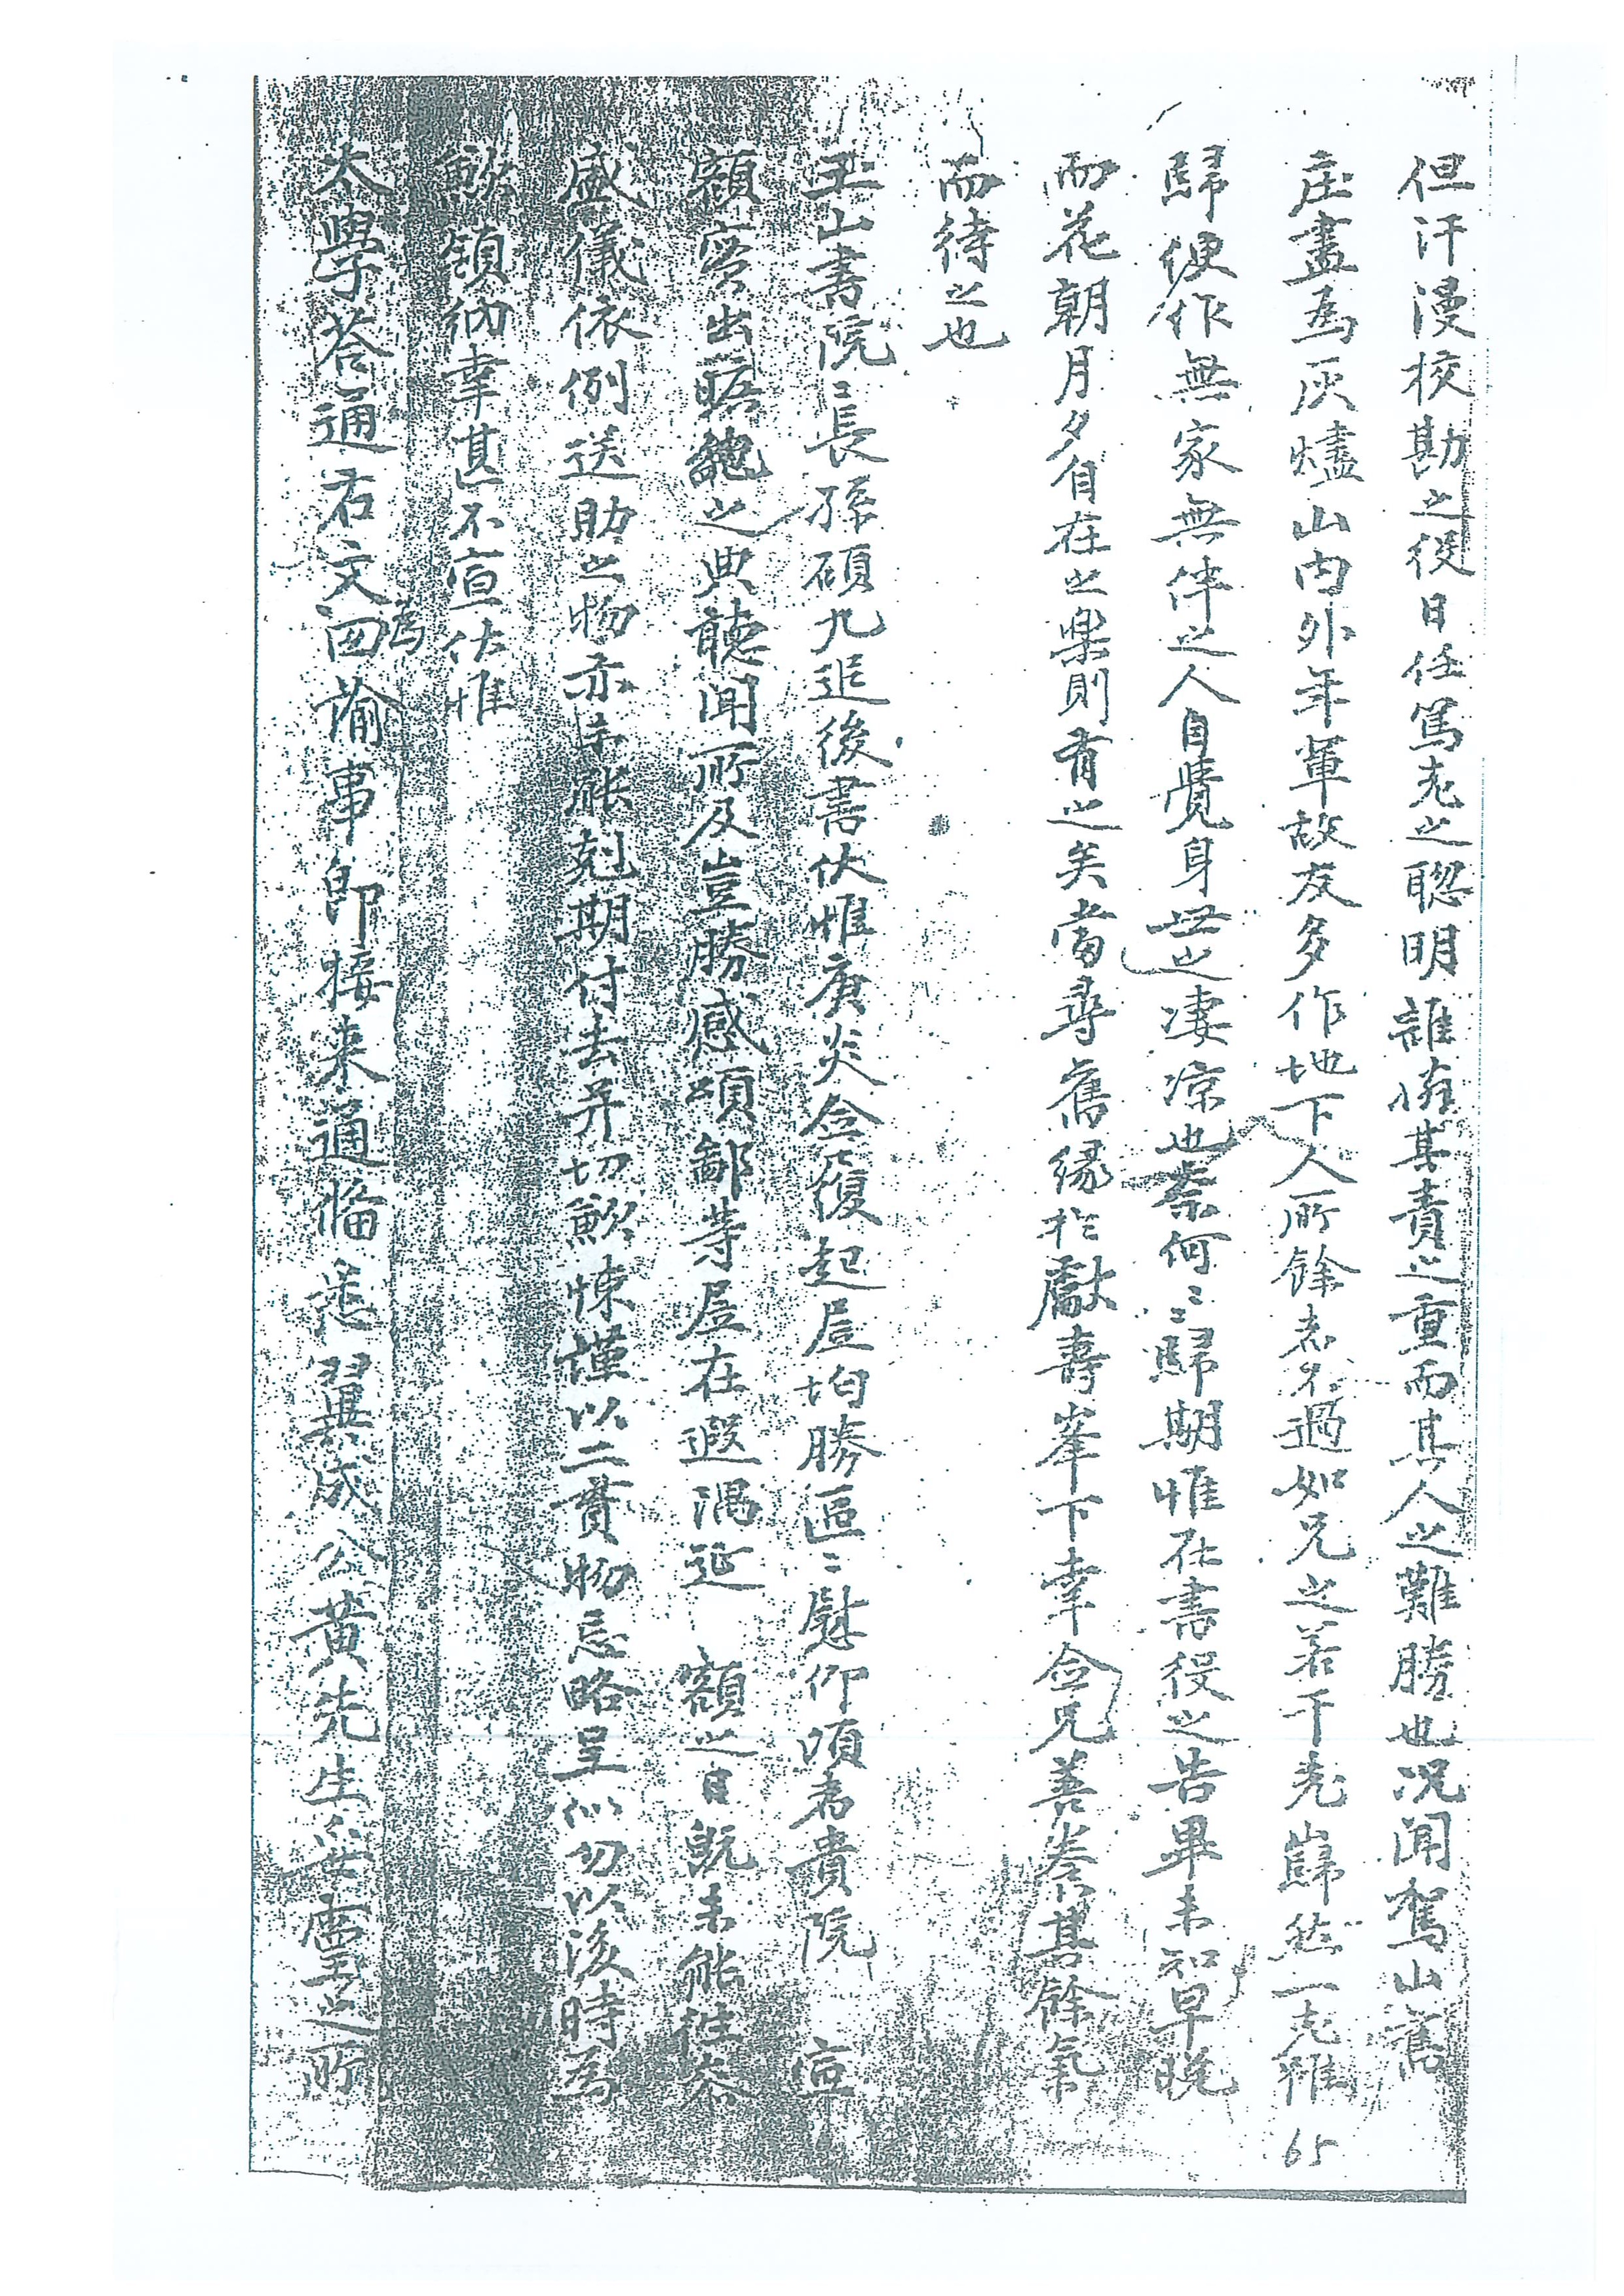 但汗漫校勘之役日任篤老之聡明誰擔其責之重而其人之難勝也况聞駕山舊
庄盡為灰燼山內外年輩故友多作地下人所餘者不過如兄之若干老巋然一老雖
歸便作無家無伴之人自覺身世之凄凉也柰何〻〻歸期惟在書役之告畢未知早晚
而花朝月夕自在之樂則有之矣當尋舊緣於獻壽峯下幸僉兄善養其餘氣
而待之也
玉山書院〻長孫碩九追後書伏惟庚炎僉履起居均勝區〻慰仰頌者貴院 宣
額實出曠絶之典聽聞所及豈勝感頌鄙等居在遐隅延 額之日旣未能徃叅
盛儀依例送助之物亦未能剋期付去并切觖悚謹以二貫物忘略呈似勿以後時為
觖領納幸甚不宣伏惟
太學答通右文為回諭事卽接来通備悉翼成公黄先生妥靈之所
65